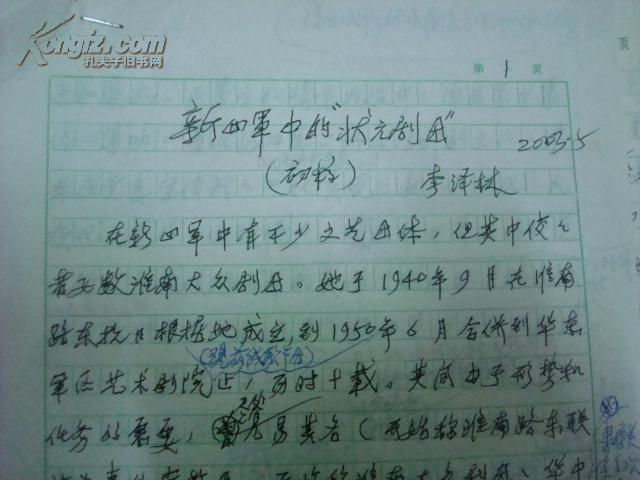 Kongfz.com
孔夫子旧书网
第 1 页
页
新四军中的"状元剧团"
2003.5
(初稿) 李泽林
在新四军中有不少文艺团体,但其中佼々
者要数淮南大众剧团。她于1940年9月在淮南
路东抗日根据地成立,到1950年6月合併到华东
军区艺术剧院止,历时十载。其间由于形势和
任务的需要,易其名(开始称淮南路东联
淮南大众剧团、华中